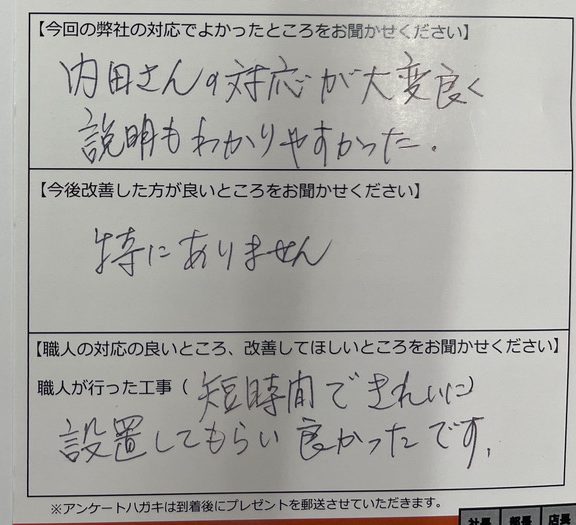 【今回の弊社の対応でよかったところをお聞かせください】
内田さんの対応が大変良く
説明もわかりやすかった.
【今後改善した方が良いところをお聞かせください】
特にありません
【職人の対応の良いところ、改善してほしいところをお聞かせください】
職人が行った工事( 短時間できれいに)
設置してもらい良かったです.
※アンケートハガキは到着後にプレゼントを郵送させていただきます。
社長 部長 店長